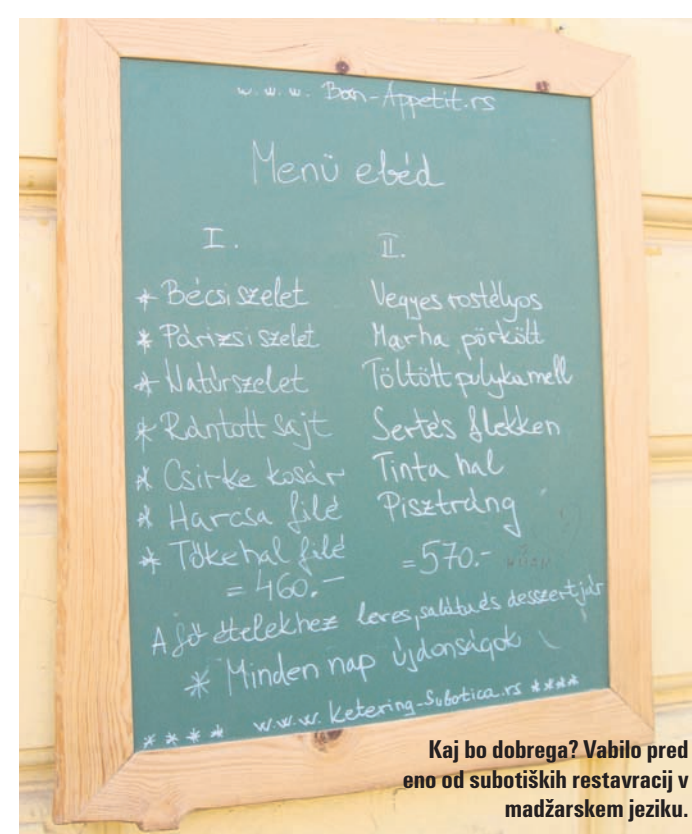 w.w.w. Bon-Appetit.rs
Menü ebéd
I.
* Bécsi szelet
* Párizsi szelet
* Natúrszelet
* Rántott sajt
* Csirke kosár
* Harcsa filé
* Tőkehal filé
= 460.-
II.
Vegyes rostélyos
Marha pörkölt
Töltött pulykamell
Sertés flekken
Tinta hal
Pisztráng
= 570.-
A fő ételekhez leves, saláta és desszert jár
* Minden nap újdonságok
* * * * w.w.w. Ketering-Subotica.rs ****
Kaj bo dobrega? Vabilo pred
eno od subotiških restavracij v
madžarskem jeziku.